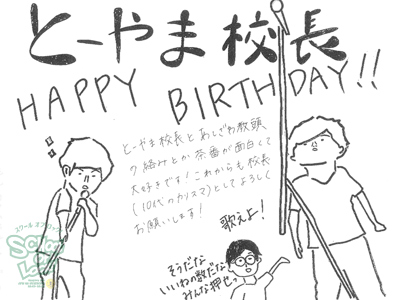 とーやま校長
HAPPY BIRTHDAY!!
とーやま校長とあしざわ教頭
の絡みとか茶番が面白くて
大好きです！これからも校長
(10代のカリスマ)としてよろしく
お願いします！
歌えよ！
そうだな
いいねの数だな
みんな押せっ
スクールオブロック
SCHOOL
OF
LOCK!